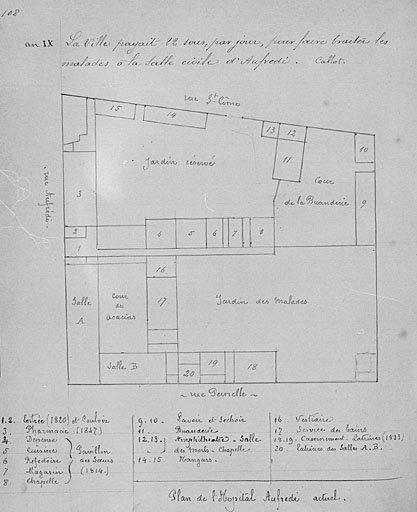 108
an IX La Ville payait 22 sous, par jour, pour faire traiter les
malades à la Salle civile d'Aufredi. Callot.
rue St Côme
15
14
13
12
11
10
Jardin réservé
Cour
de la Buanderie
rue Aufredi.
3
9
2
1
4
5
6
7
8
16
Salle
A
Cour
de
acacias
17
Jardin des malades
Salle B
20
19
18
~ rue Gerrelle ~
1.2. Entrée (1830) et Couloir
3. Pharmacie (1847)
4. Dépense
5 Cuisine
6 Réfectoire
7 Magasin
8 Chapelle
Pavillon
des Sœurs
(1814.)
9-10- Lavoir et Sechoir
11 Buanderie
12.13- Amphithéatre - Salle
des Morts - Chapelle
14-15 Hangars -
16 Vestiaire
17 Services des bains
18-19- Casernement - Latrines (1833)
20. Latrines des Salles A.B.
Plan de l'Hôpital Aufredi actuel.